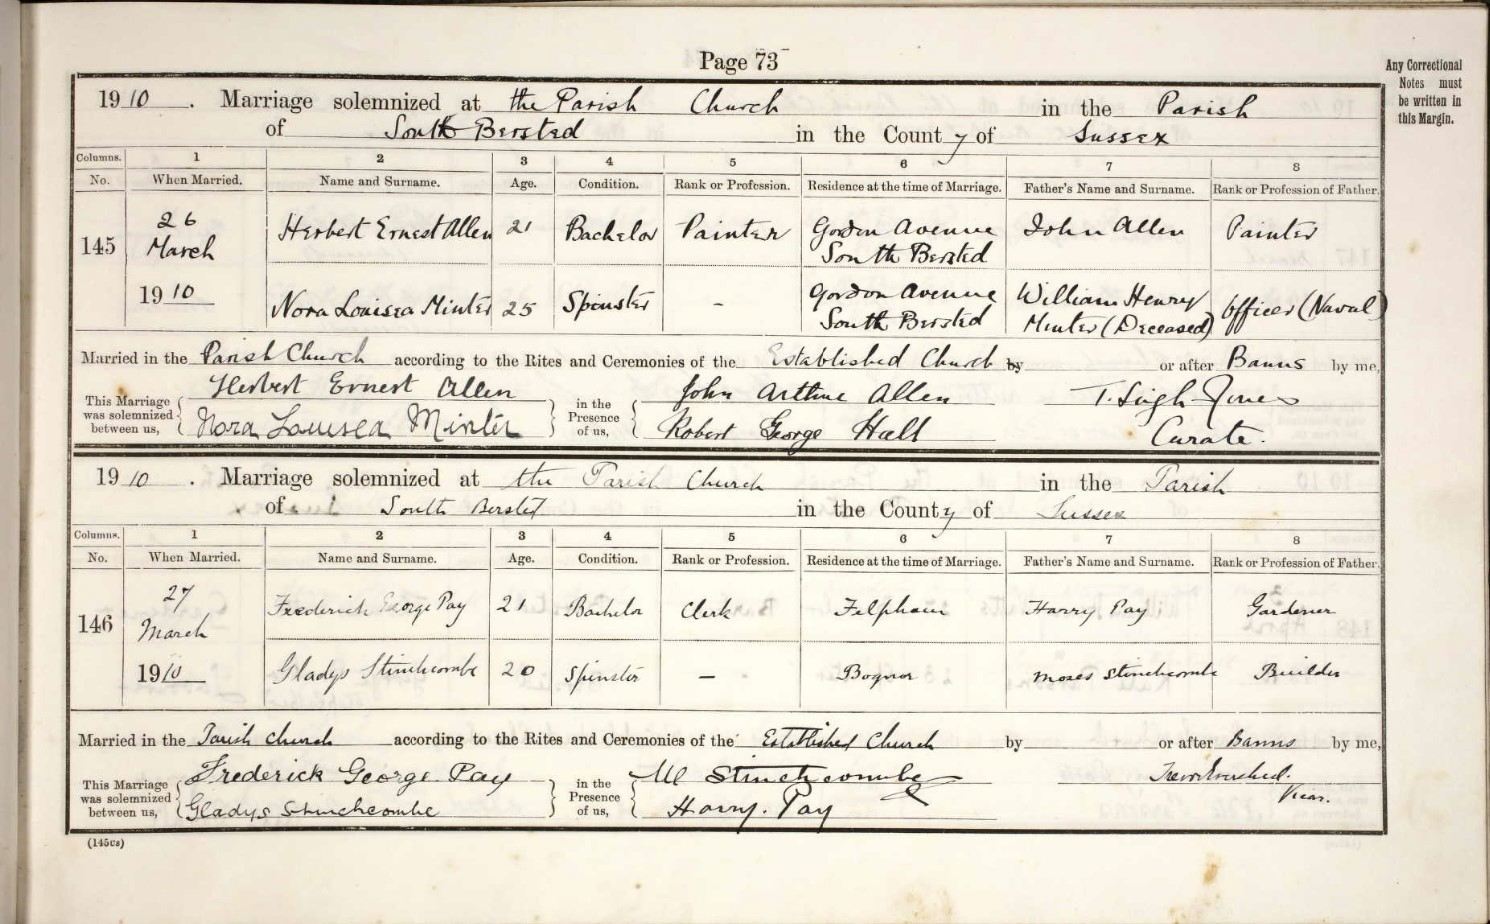 Page 73
Any Correctional
Notes must
be written in
this Margin.
1910. Marriage solemnized at the Parish Church in the Parish
of South Bersted in the County of Sussex
Columns. 1 2 3 4 5 6 7 8
No. When Married. Name and Surname. Age. Condition. Rank or Profession. Residence at the time of Marriage. Father's Name and Surname. Rank or Profession of Father.
145
26
March
1910
Herbert Ernest Allen 21 Bachelor Painter Gordon Avenue South Bersted John Allen Painter
Nora Louisea Minter 25 Spinster – Gordon Avenue South Bersted William Henry Minter (Deceased) Officer (Naval)
Married in the Parish Church according to the Rites and Ceremonies of the Established Church by or after Banns by me,
This Marriage was solemnized between us,
Herbert Ernest Allen
Nora Louisea Minter
in the Presence of us,
John Arthur Allen
Robert George Hall
T. Jones
Curate.
1910. Marriage solemnized at the Parish Church in the Parish
of South Bersted in the County of Sussex
Columns. 1 2 3 4 5 6 7 8
No. When Married. Name and Surname. Age. Condition. Rank or Profession. Residence at the time of Marriage. Father's Name and Surname. Rank or Profession of Father.
146
27
March
1910
Frederick George Pay 21 Bachelor Clerk Felpham Harry Pay Gardener
Gladys Stinchcombe 20 Spinster – Bognor Moses Stinchcombe Builder
Married in the Parish Church according to the Rites and Ceremonies of the Established Church by or after Banns by me,
This Marriage was solemnized between us,
Frederick George Pay
Gladys Stinchcombe
in the Presence of us,
M Stinchcombe
Harry. Pay
Vicar.
(145cs)